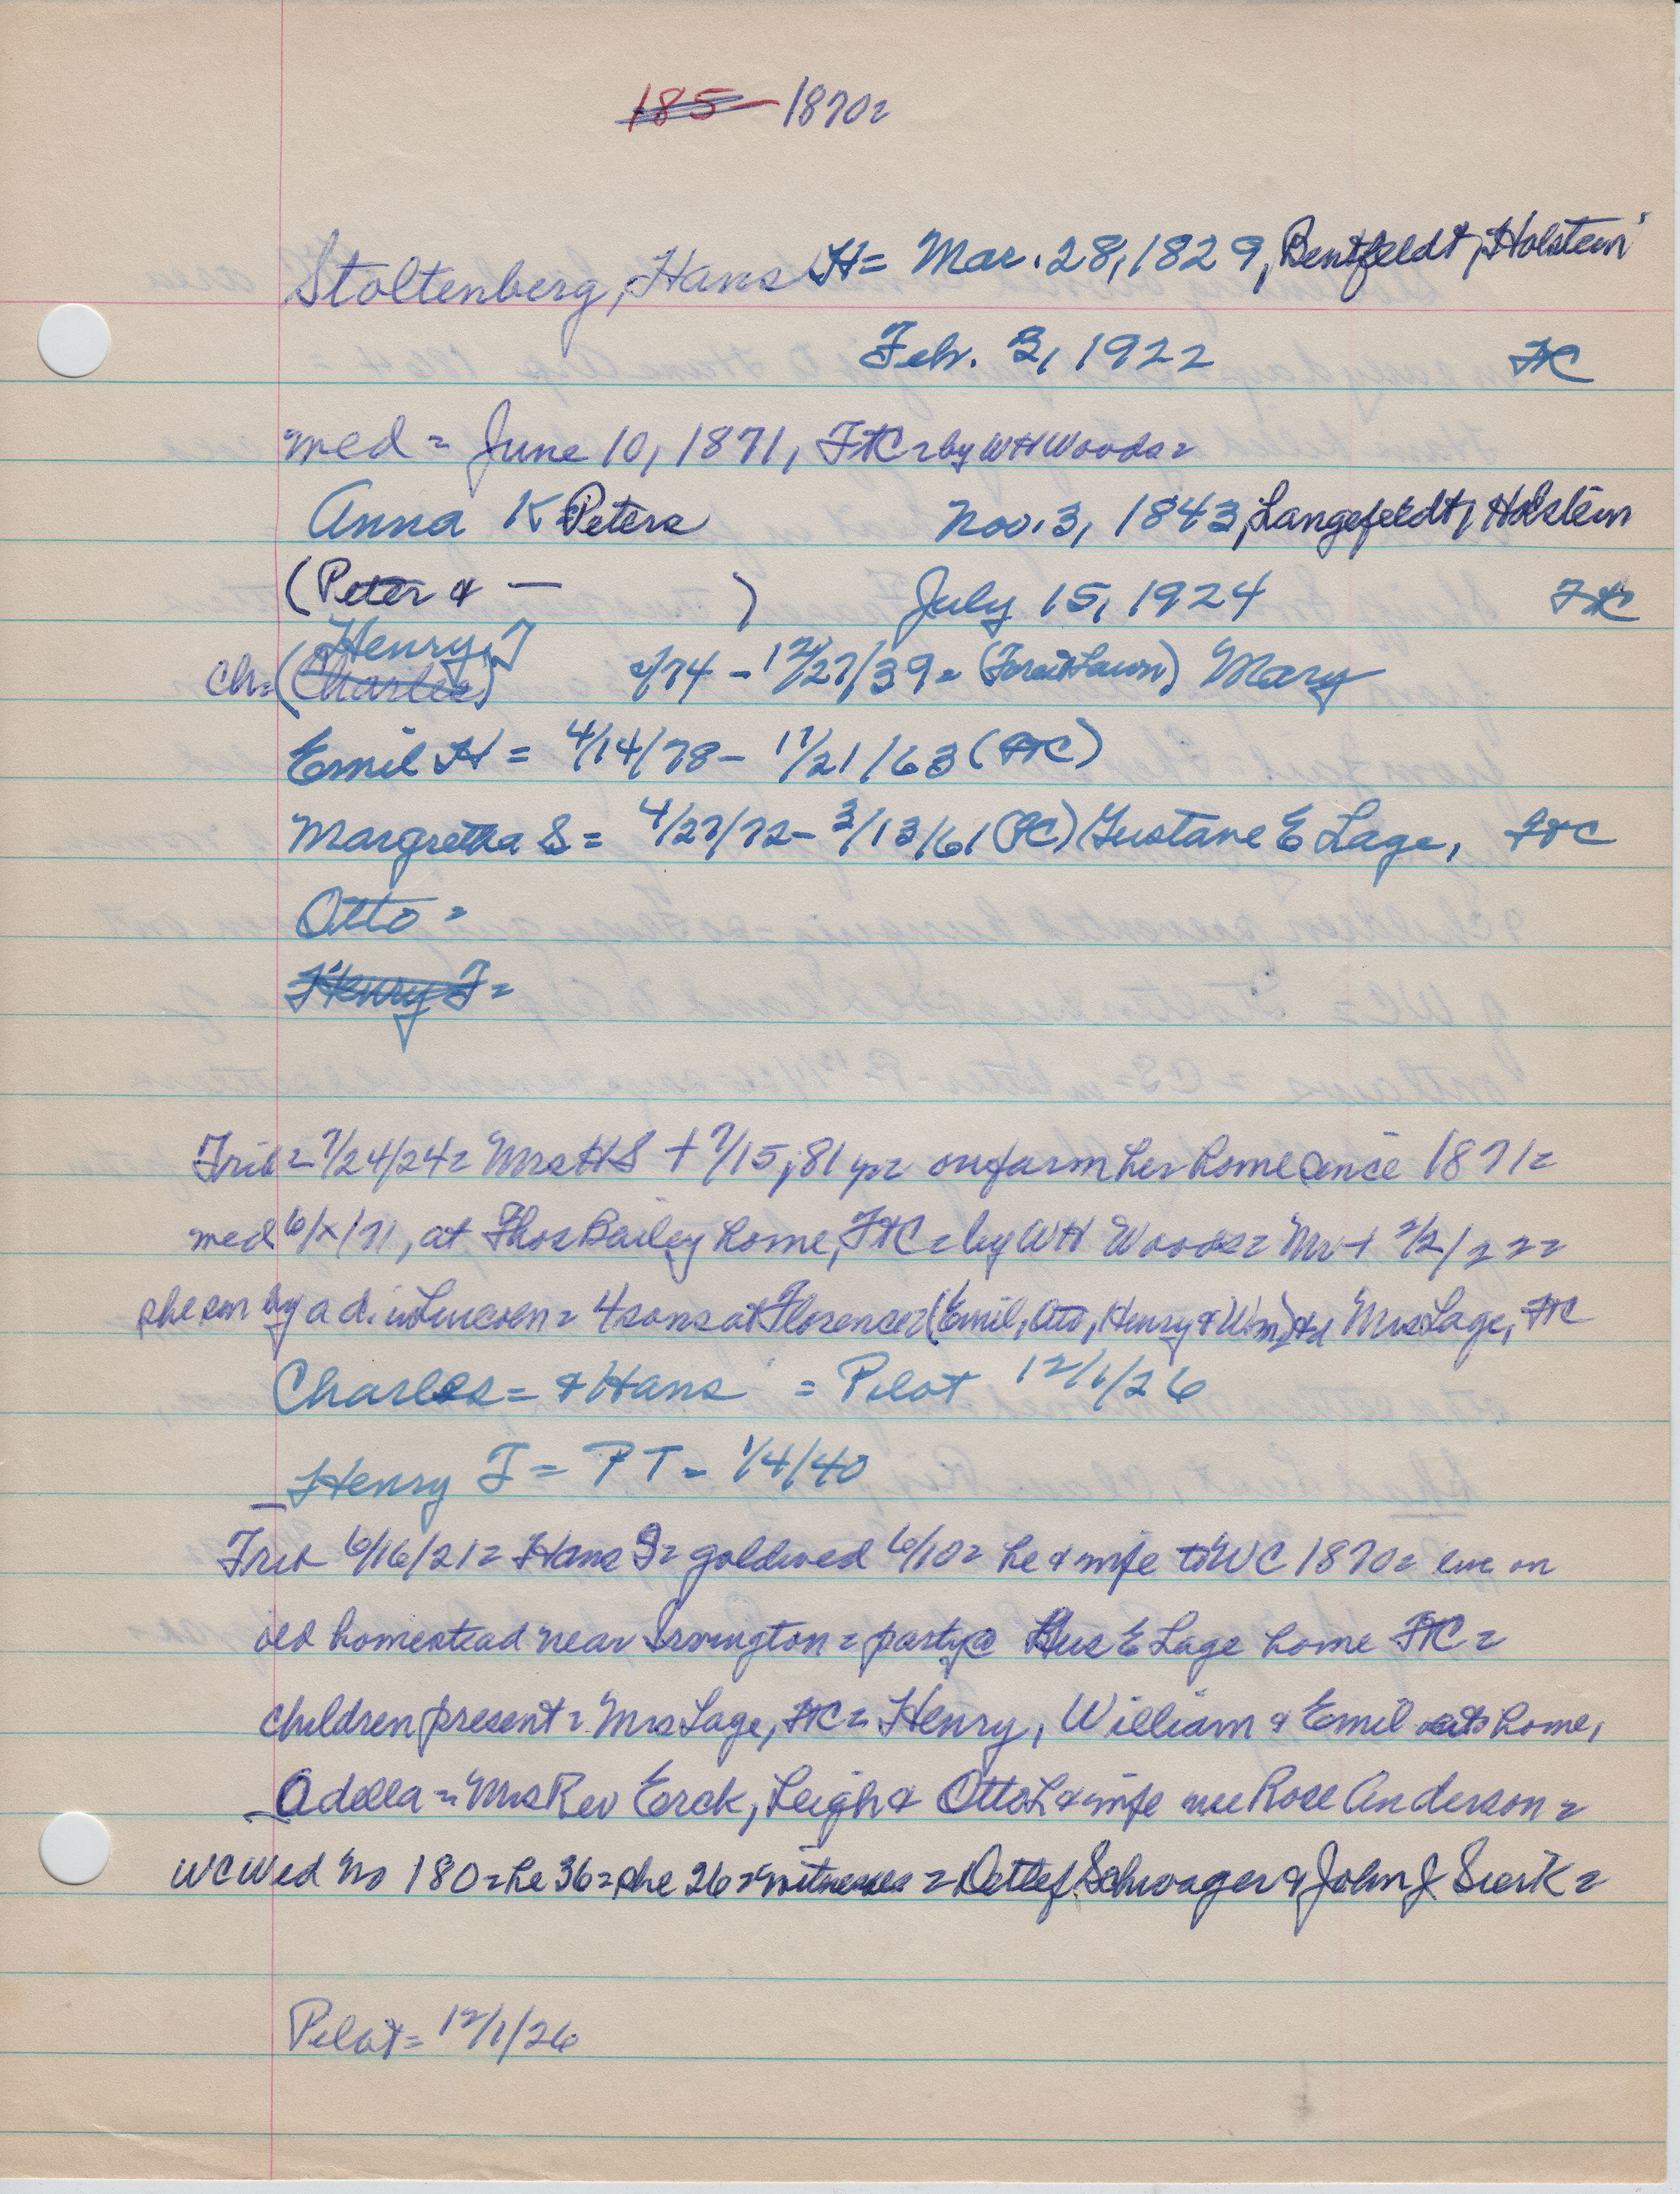 185 1870=
Stoltenberg, Hans H= Mar. 28, 1829, Bentfeldt, Holstein
Feb. 2, 1922 FtC
med = June 10, 1871, FtC = by WH Woods =
Anna K Peters Nov. 3, 1843, Langefeldt, Holstein
(Peter & — ) July 15, 1924 FtC
Henry F
Ch= (Charles) /74 - 12/27/39 = (Forest Lawn) Mary
Emil H = 4/14/78 - 11/21/63 (FtC)
Margretha S = 4/27/72 - 3/13/61 (FC) Gustave E Lage, FtC
Otto =
Henry F =
Trib = 7/24/24 = Mrs HS + 7/15, 81 yr = on farm her home since 1871 =
med 6/x/71, at Thos Bailey home, FtC = by WH Woods = Mr + 2/2/22 =
she sur by a d. in Lincoln = 4 sons at Florence (Emil, Otto, Henry & Wm) & d Mrs Lage, FtC
Charles = & Hans = Pilot 12/1/26
Henry F = PT = 1/4/40
Trib 6/16/21 = Hans S = gold wed 6/10 = he & wife to WC 1870 = live on
old homestead near Irvington = party @ Gus E Lage home FtC =
children present = Mrs Lage, FtC = Henry, William & Emil at home,
Adella = Mrs Rev Erck, Leigh & Otto L & wife nee Rose Anderson =
WC Wed No 180 = he 36 = she 26 = witnesses = Detlef Schwager & John J Sierk =
Pilot = 12/1/26